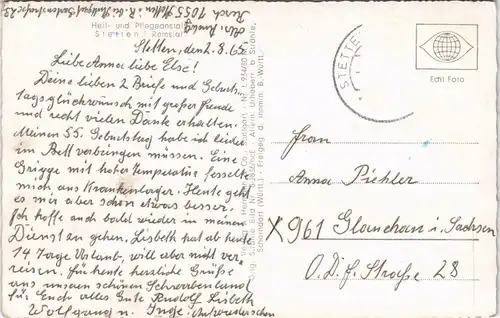 Heil- und Pflegeanstalt
Stetten i. Remstal
Stetten, den 2.8.65
Liebe Anna, liebe Else!
Deine lieben 2 Briefe und Geburts-
tagsglückwunsch mit großer Freude
und recht vielen Dank erhalten.
Meinen 55. Geburtstag habe ich leider
im Bett verbringen müssen. Eine
Grippe mit hoher Temperatur fesselte
mich ans Krankenlager. Heute geht
es mir aber schon etwas besser.
Ich hoffe auch bald wieder in meinen
Dienst zu gehen. Lisbeth hat ab heute
14 Tage Urlaub, will aber nicht ver-
reisen. Für heute herzliche Grüße
aus unserem schönen Schwabenland
für Euch alles Gute Rudolf Lisbeth
Wolfgang u. Inge.
STETTEN
Echt Foto
Frau
Anna Pichler
X 961 Glauchau i. Sachsen
O.d.F. Straße 28